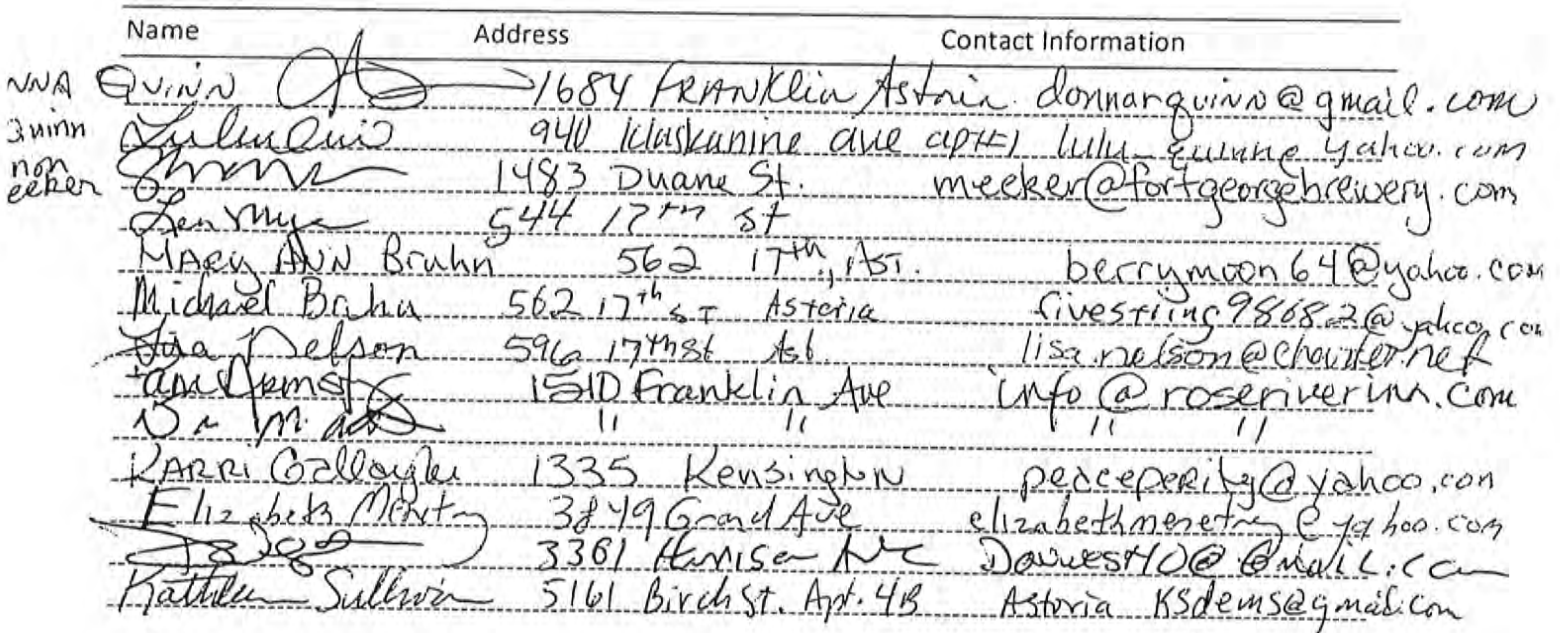 Name Address Contact Information
NNA Quinn 1684 Franklin Astoria donnarquinn@gmail.com
Quinn 940 Klaskanine ave apt#1
non 1483 Duane St. meeker@fortgeorgebrewery.com
eeker
544 17th st
Mary Ann Bruhn 562 17th, Ast. berrymoon64@yahoo.com
Michael Bruhn 562 17th ST Astoria
Lisa Nelson 596 17th St Ast. lisa.nelson@charter.net
1510 Franklin Ave info@roseriverinn.com
" " " "
Karri Gallaugher 1335 Kensington
Elizabeth Menetrey 3849 Grand Ave elizabethmenetrey@yahoo.com
3361 Harrison Ave
Kathleen Sullivan 5161 Birch St. Apt. 4B Astoria KSdems@gmail.com